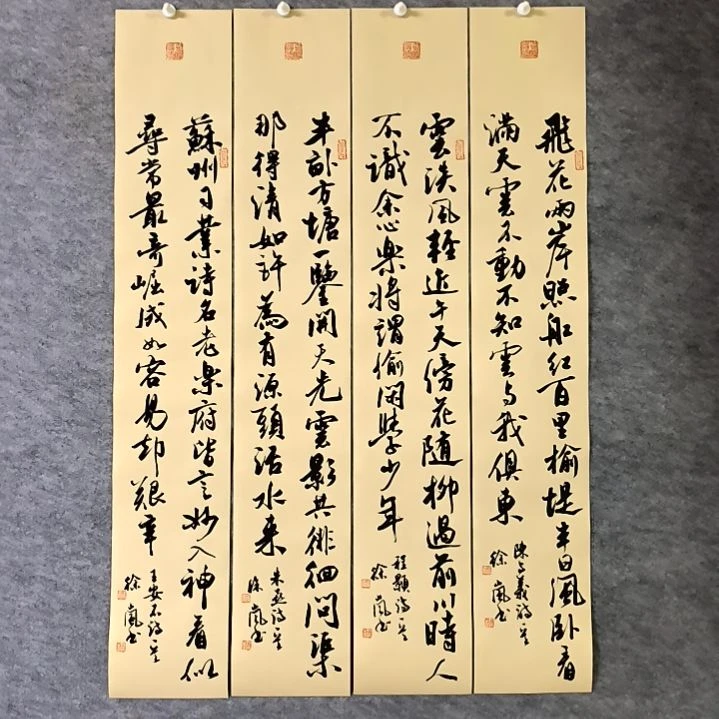 飛花兩岸照船紅百里榆堤半日風臥看
滿天雲不動不知雲与我俱東
陳与義詩一首
徐嵐書
雲淡風輕近午天傍花隨柳過前川時人
不識余心樂將謂偷閑學少年
程顥詩一首
徐嵐書
半畝方塘一鑒開天光雲影共徘徊問渠
那得清如許為有源頭活水来
朱熹詩一首
徐嵐書
蘇州司業詩名老樂府皆言妙入神看似
尋常最奇崛成如容易却艱辛
王安石詩一首
徐嵐書